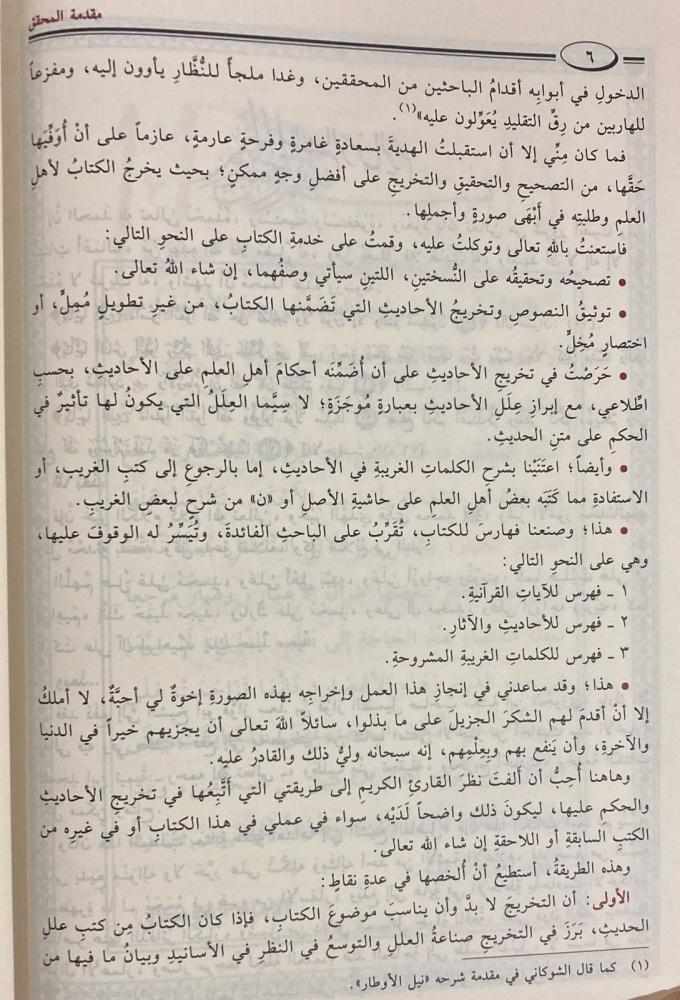 مقدمة المحقق
٦
الدخولِ في أبوابِه أقدامُ الباحثين من المحققين، وغدا ملجأً للنُّظَّارِ يأوون إليه، ومفزعاً
للهاربين من رِقِّ التقليدِ يُعَوِّلون عليه»(١).
فما كان مِنِّي إلا أن استقبلتُ الهديةَ بسعادةٍ غامرةٍ وفرحةٍ عارمةٍ، عازماً على أنْ أُوَفِّيَها
حَقَّها، من التصحيحِ والتحقيقِ والتخريجِ على أفضلِ وجهٍ ممكنٍ؛ بحيث يخرجُ الكتابُ لأهلِ
العلمِ وطلبتِه في أَبْهَى صورةٍ وأجملِها.
فاستعنتُ باللهِ تعالى وتوكلتُ عليه، وقمتُ على خدمةِ الكتابِ على النحوِ التالي:
• تصحيحُه وتحقيقُه على النُّسختينِ، اللتينِ سيأتي وصفُهما، إن شاء اللهُ تعالى.
• توثيقُ النصوصِ وتخريجُ الأحاديثِ التي تَضَمَّنها الكتابُ، من غيرِ تطويلٍ مُمِلٍّ، أو
اختصارٍ مُخِلٍّ.
• حَرَصْتُ في تخريجِ الأحاديثِ على أن أُضَمِّنَه أحكامَ أهلِ العلمِ على الأحاديثِ، بحسبِ
اطِّلاعي، مع إبرازِ عِلَلِ الأحاديثِ بعبارةٍ مُوجَزَةٍ؛ لا سِيَّما العِلَلُ التي يكونُ لها تأثيرٌ في
الحكمِ على متنِ الحديثِ.
• وأيضاً؛ اعتَنَيْنا بشرحِ الكلماتِ الغريبةِ في الأحاديثِ، إما بالرجوعِ إلى كتبِ الغريبِ، أو
الاستفادةِ مما كَتَبَه بعضُ أهلِ العلمِ على حاشيةِ الأصلِ أو «ن» من شرحٍ لبعضِ الغريبِ.
• هذا؛ وصنعنا فهارسَ للكتابِ، تُقَرِّبُ على الباحثِ الفائدةَ، وتُيَسِّرُ له الوقوفَ عليها،
وهي على النحوِ التالي:
١ ـ فهرس للآياتِ القرآنيةِ.
٢ ـ فهرس للأحاديثِ والآثارِ.
٣ ـ فهرس للكلماتِ الغريبةِ المشروحةِ.
• هذا؛ وقد ساعدني في إنجازِ هذا العملِ وإخراجِه بهذه الصورةِ إخوةٌ لي أحبَّةٌ، لا أملكُ
إلا أنْ أقدمَ لهم الشكرَ الجزيلَ على ما بذلوا، سائلاً اللهَ تعالى أن يجزيهم خيراً في الدنيا
والآخرةِ، وأن يَنفع بهم وبِعِلْمِهم، إنه سبحانه وليُّ ذلك والقادرُ عليه.
وهاهنا أُحِبُّ أن ألفتَ نظرَ القارئِ الكريمِ إلى طريقتي التي أَتَّبِعُها في تخريجِ الأحاديثِ
والحكمِ عليها، ليكونَ ذلك واضحاً لَدَيْه، سواء في عملي في هذا الكتابِ أو في غيرِه من
الكتبِ السابقةِ أو اللاحقةِ إن شاء الله تعالى.
وهذه الطريقةُ، أستطيعُ أنْ أُلخصها في عدةِ نقاطٍ:
الأولى: أن التخريجَ لا بدَّ وأن يناسبَ موضوعَ الكتابِ، فإذا كان الكتابُ مِن كتبِ عللِ
الحديثِ، بَرَزَ في التخريجِ صناعةُ العللِ والتوسعُ في النظرِ في الأسانيدِ وبيانُ ما فيها من
(١) كما قال الشوكاني في مقدمة شرحه «نيل الأوطار».